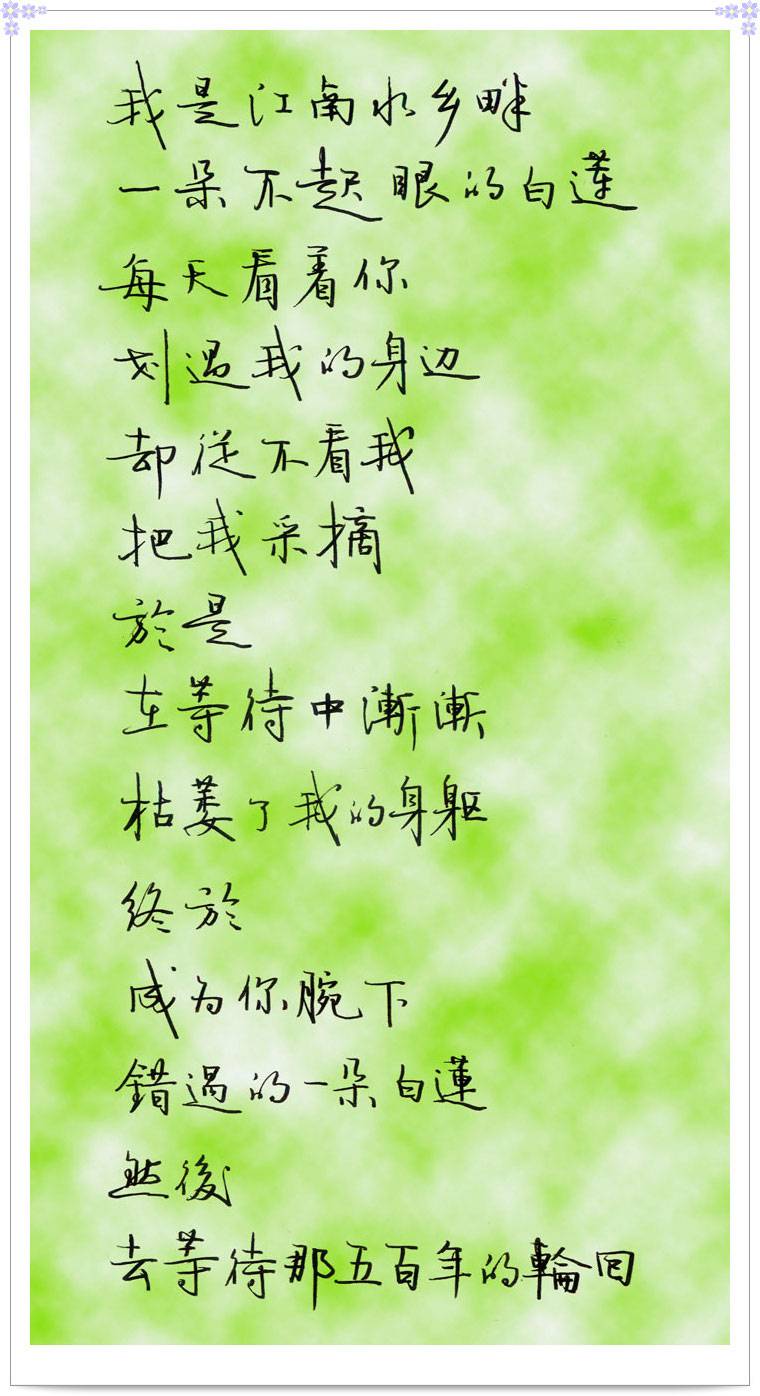 我是江南水乡畔
一朵不起眼的白蓮
每天看着你
划過我的身边
却従不看我
把我采摘
於是
在等待中漸漸
枯萎了我的身躯
终於
成为你腕下
錯過的一朵白蓮
然後
去等待那五百年的輪回